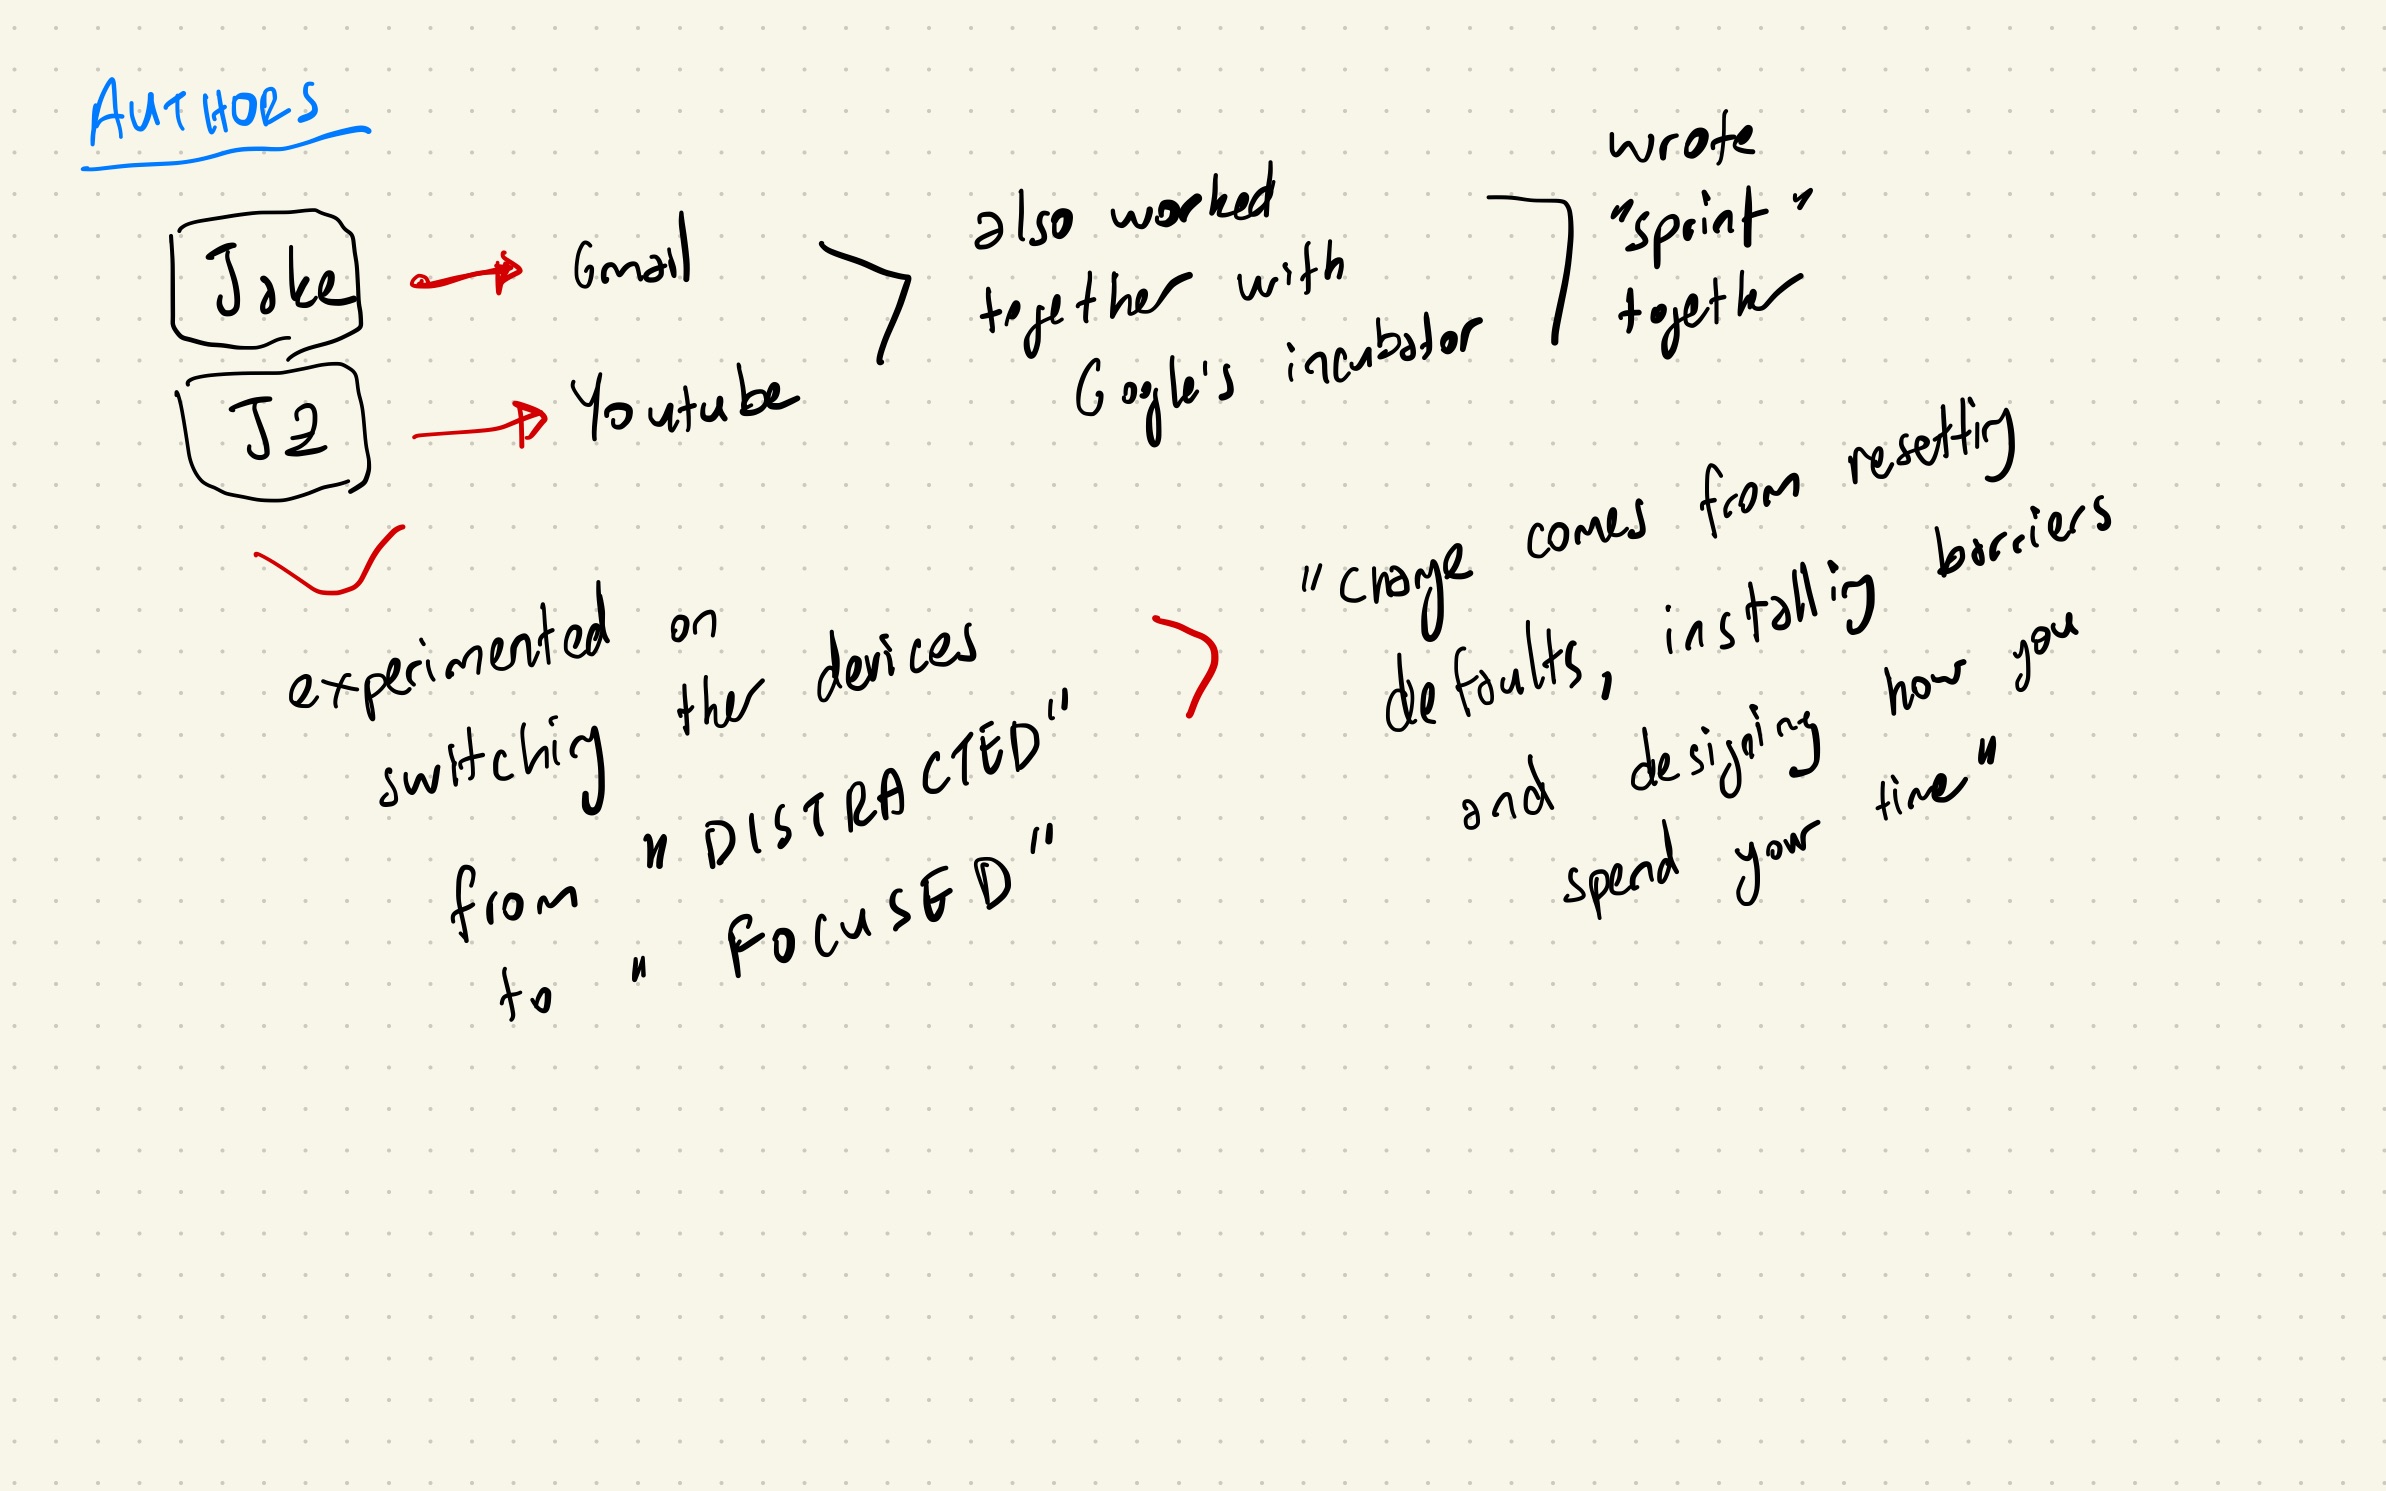 AUTHORS
Jake
Gmail
J2
Youtube
also worked
together with
Google's incubator
wrote
"sprint"
together
experimented on
switching their devices
from "DISTRACTED"
to "FOCUSED"
"change comes from resetting
defaults, installing barriers
and designing how you
spend your time"